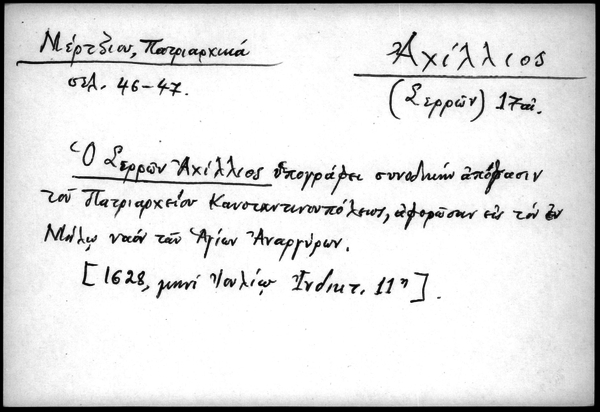 Μέρτζιου, Πατριαρχικά
σελ. 46-47.
Ἀχίλλιος
(Σερρῶν) 17 αἰ.
Ὁ Σερρῶν Ἀχίλλιος ὑπογράφει συνοδικήν ἀπόφασιν
τοῦ Πατριαρχείου Κωνσταντινουπόλεως, ἀφορῶσαν εἰς τόν ἐν
Μήλῳ ναόν τῶν Ἁγίων Ἀναργύρων.
[1628, μηνί Ἰουλίῳ Ἰνδικτ. 11η].